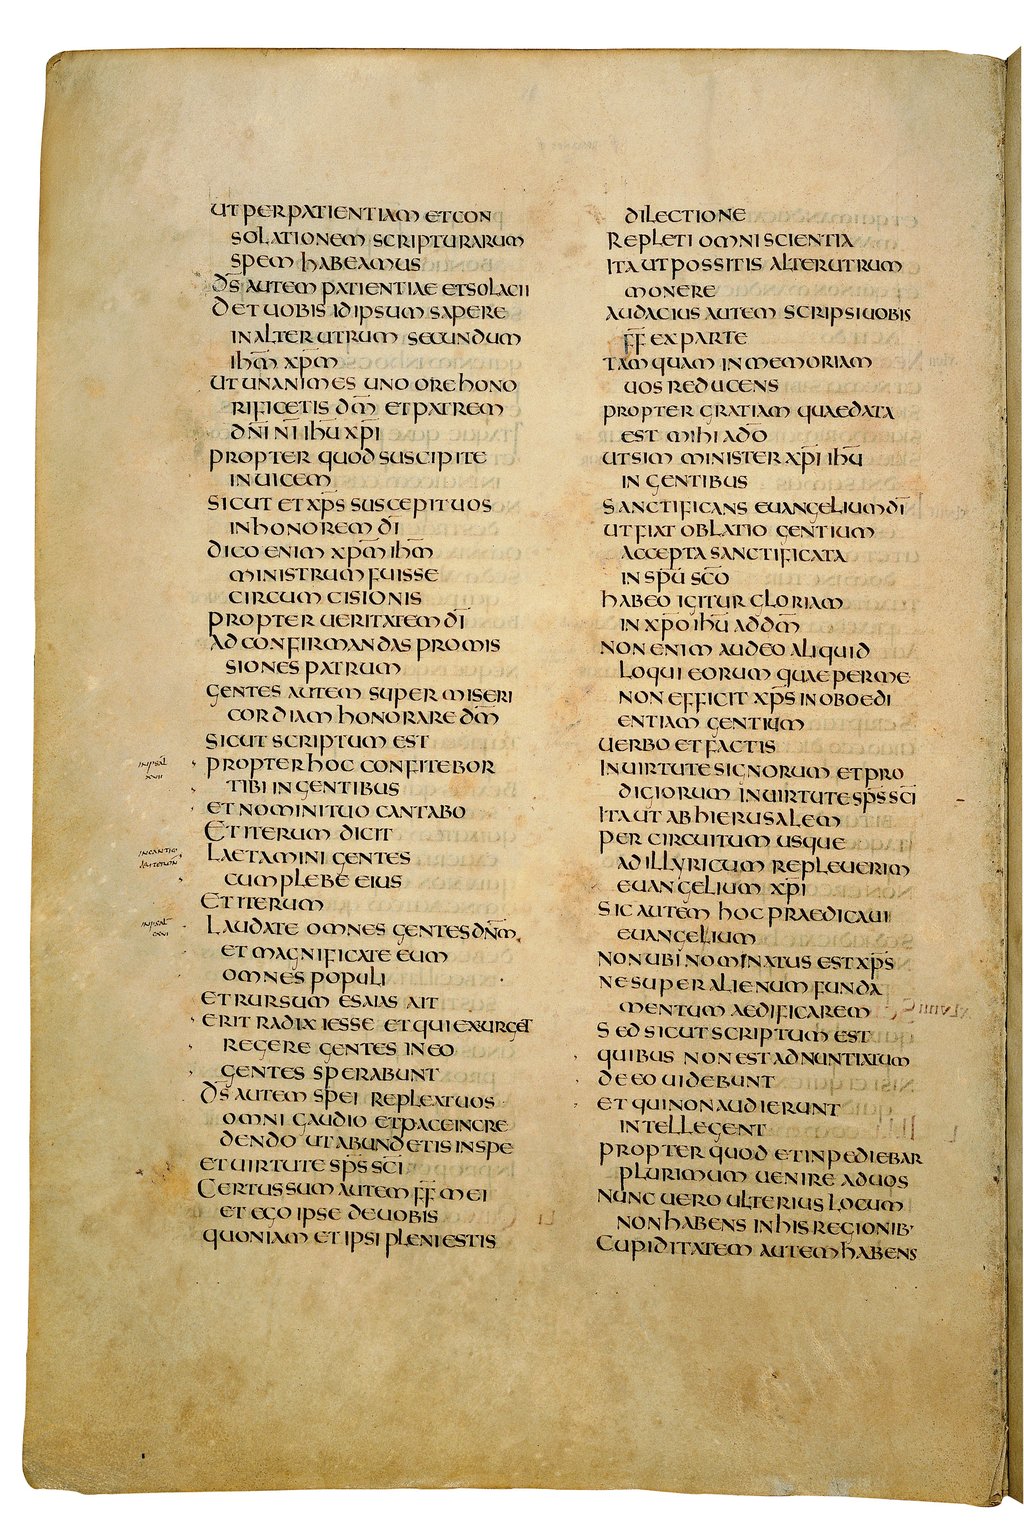 UT PER PATIENTIAM ET CON
SOLATIONEM SCRIPTURARUM
SPEM HABEAMUS
D̅S̅ AUTEM PATIENTIAE ET SOLACII
DET UOBIS IDIPSUM SAPERE
IN ALTERUTRUM SECUNDUM
IHM̅ XPM̅
UT UNANIMES UNO ORE HONO
RIFICETIS DM̅ ET PATREM
DN̅I N̅I IHU̅ XPI̅
PROPTER QUOD SUSCIPITE
INUICEM
SICUT ET XPS̅ SUSCEPIT UOS
IN HONOREM DI̅
DICO ENIM XPM̅ IHM̅
MINISTRUM FUISSE
CIRCUMCISIONIS
PROPTER UERITATEM DI̅
AD CONFIRMANDAS PROMIS
SIONES PATRUM
GENTES AUTEM SUPER MISERI
CORDIAM HONORARE DM̅
SICUT SCRIPTUM EST
IN PSAL XVII
PROPTER HOC CONFITEBOR
TIBI IN GENTIBUS
ET NOMINI TUO CANTABO
ET ITERUM DICIT
IN CANTIC
LAETAMINI GENTES
CUM PLEBE EIUS
ET ITERUM
IN PSAL CXVI
LAUDATE OMNES GENTES DN̅M
ET MAGNIFICATE EUM
OMNES POPULI
ET RURSUM ESAIAS AIT
ERIT RADIX IESSE ET QUI EXURGET
REGERE GENTES IN EO
GENTES SPERABUNT
D̅S̅ AUTEM SPEI REPLEAT UOS
OMNI GAUDIO ET PACE IN CRE
DENDO UT ABUNDETIS IN SPE
ET UIRTUTE SPS̅ SCI̅
CERTUS SUM AUTEM FF̅ MEI
ET EGO IPSE DE UOBIS
QUONIAM ET IPSI PLENI ESTIS
DILECTIONE
REPLETI OMNI SCIENTIA
ITA UT POSSITIS ALTERUTRUM
MONERE
AUDACIUS AUTEM SCRIPSI UOBIS
FF̅ EX PARTE
TAMQUAM IN MEMORIAM
UOS REDUCENS
PROPTER GRATIAM QUAE DATA
EST MIHI A DO̅
UT SIM MINISTER XPI̅ IHU̅
IN GENTIBUS
SANCTIFICANS EUANGELIUM DI̅
UT FIAT OBLATIO GENTIUM
ACCEPTA SANCTIFICATA
IN SPU̅ SCO̅
HABEO IGITUR GLORIAM
IN XPO̅ IHU̅ AD DM̅
NON ENIM AUDEO ALIQUID
LOQUI EORUM QUAE PER ME
NON EFFICIT XPS̅ IN OBOEDI
ENTIAM GENTIUM
UERBO ET FACTIS
IN UIRTUTE SIGNORUM ET PRO
DIGIORUM IN UIRTUTE SPS̅ SCI̅
ITA UT AB HIERUSALEM
PER CIRCUITUM USQUE
AD ILLYRICUM REPLEUERIM
EUANGELIUM XPI̅
SIC AUTEM HOC PRAEDICAUI
EUANGELIUM
NON UBI NOMINATUS EST XPS̅
NE SUPER ALIENUM FUNDA
MENTUM AEDIFICAREM
SED SICUT SCRIPTUM EST
QUIBUS NON EST ADNUNTIATUM
DE EO UIDEBUNT
ET QUI NON AUDIERUNT
INTELLEGENT
PROPTER QUOD ET INPEDIEBAR
PLURIMUM UENIRE AD UOS
NUNC UERO ULTERIUS LOCUM
NON HABENS IN HIS REGIONIB·
CUPIDITATEM AUTEM HABENS